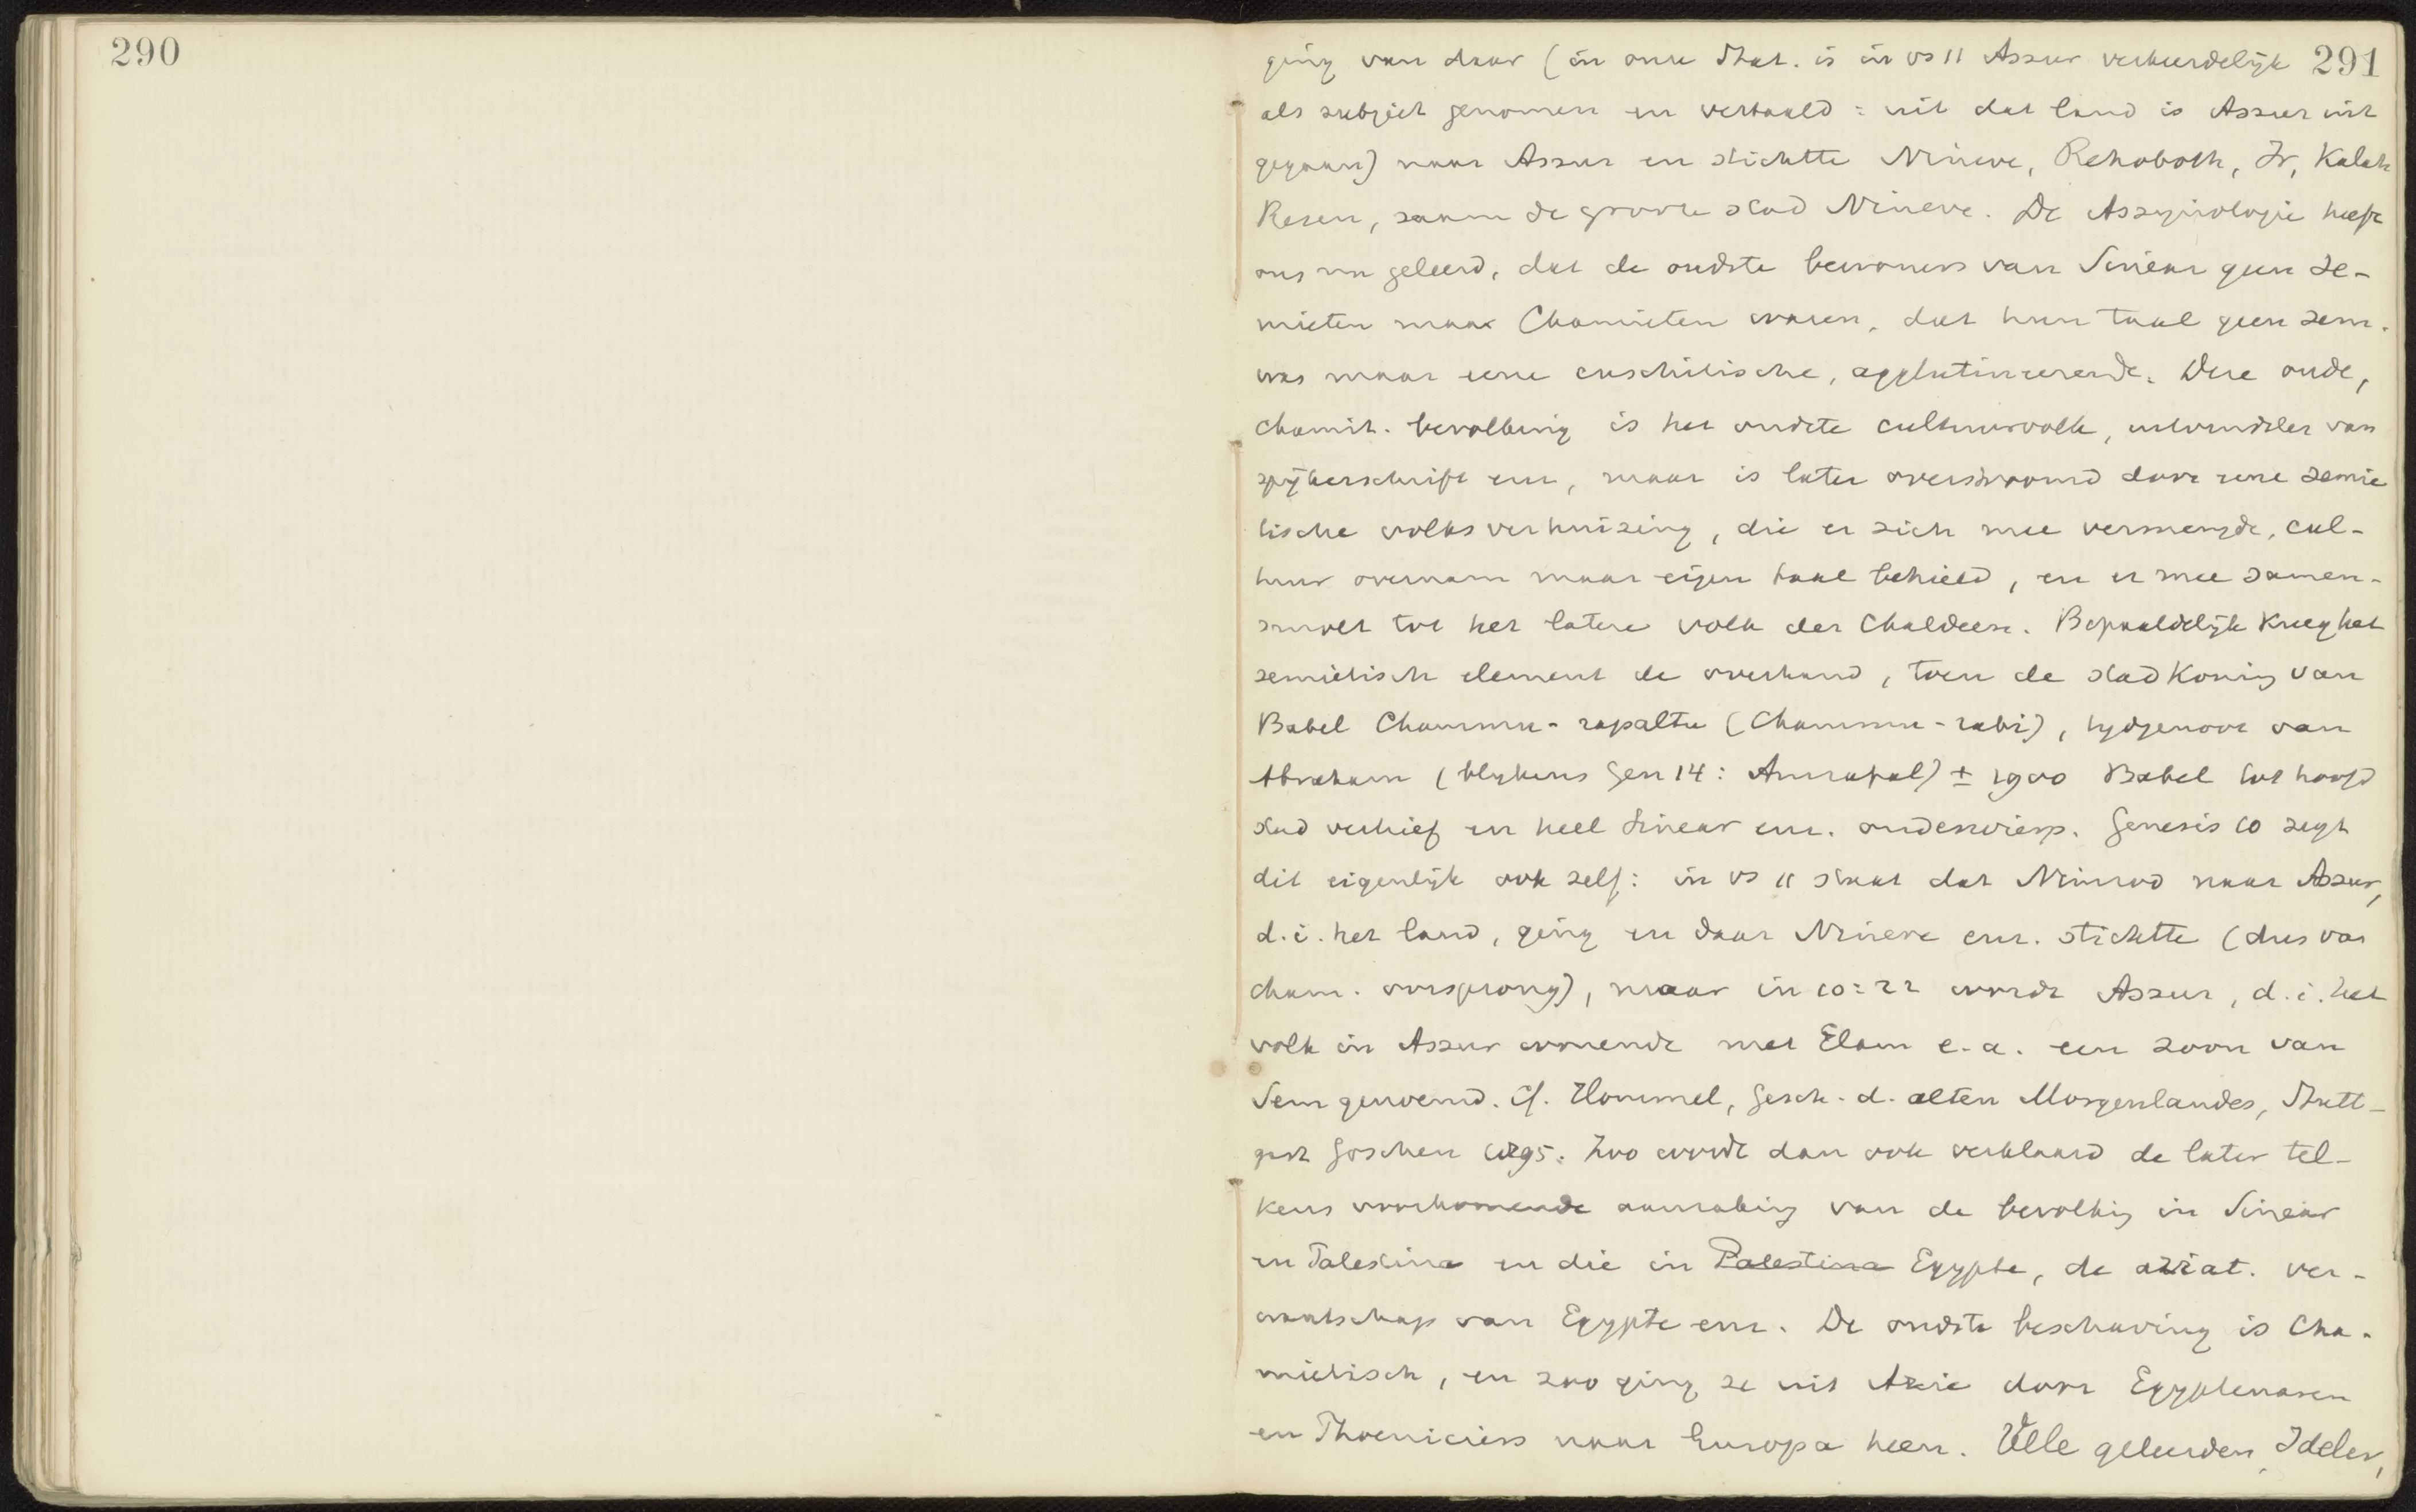 290
291
ging van daar (in onze Stat. is in vs 11 Assur verkeerdelijk
als subject genomen en vertaald: uit dat land is Assur uit
gegaan) naar Assur en stichtte Nineve, Rehoboth, Ir, Kalah
Resen, saam de groote stad Nineve. De Assyriologie heeft
ons nu geleerd, dat de oudste bewoners van Sinear geen Se-
mieten maar Chamieten waren, dat hun taal geen sem.
was maar eene cuschitische, agglutineerende. Deze oude,
chamit. bevolking is het oudste cultuurvolk, uitvindster van
spijkerschrift enz, maar is later overstroomd door eene semie
tische volksverhuizing, die er zich mee vermengde, cul-
tuur overnam maar eigen taal behield, en er mee samen-
smolt tot het latere volk der Chaldeen. Bepaaldelijk kreeg het
semietisch element de overhand, toen de stadkoning van
Babel Chammu-rapaltu (Chammu-rabi), tijdgenoot van
Abraham (blijkens Gen 14: Amrafel) ± 1900 Babel tot hoofd
stad verhief en heel Sinear enz. onderwierp. Genesis 10 zegt
dit eigenlijk ook zelf: in vs 11 staat dat Nimrod naar Assur,
d.i. het land, ging en daar Nineve enz. stichtte (dus van
cham. oorsprong), maar in 10:22 wordt Assur, d.i. het
volk in Assur wonende met Elam e.a. een zoon van
Sem genoemd. Cf. Hommel, Gesch. d. alten Morgenlandes, Stutt-
gart Göschen 1895. Zoo wordt dan ook verklaard de later tel-
kens voorkomende aanraking van de bevolking in Sinear
en Palestina en die in Palestina Egypte, de aziat. ver-
wantschap van Egypte enz. De oudste beschaving is Cha-
mietisch, en zoo ging ze uit Azie door Egyptenaren
en Phoeniciers naar Europa heen. Vele geleerden, Ideler,